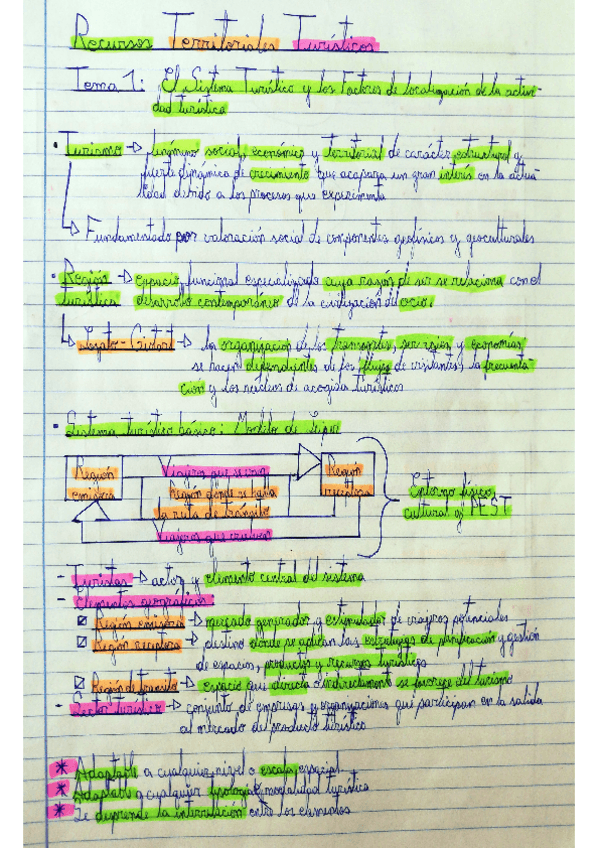 Recursos Territoriales Turísticos
Tema 1: El Sistema Turístico y los Factores de localización de la activi-
dad turística
· Turismo → fenómeno social, económico y territorial de carácter estructural y
fuerte dinámica de crecimiento que acapara un gran interés en la actua-
lidad debido a los procesos que experimenta
↳ Fundamentado por valoración social de componentes geofísicos y geoculturales
· Región → espacio funcional especializado cuya razón de ser se relaciona con el
turística desarrollo contemporáneo de la civilización del ocio.
↳ → la organización de los transportes, servicios y economías
se hacen dependientes de los flujos de visitantes, la frecuenta-
ción y los núcleos de acogida turísticos
· Sistema turístico básico: Modelo de Leiper
Región Viajeros que se van Región
emisora Región donde se hace receptora
la ruta de tránsito
Viajeros que vuelven
Entorno físico,
cultural y PEST
- Turistas → actor y elemento central del sistema
- Elementos geográficos:
Región emisora → mercado generador y estimulador de viajeros potenciales
Región receptora → destino donde se aplican las estrategias de planificación y gestión
de espacios, productos y recursos turísticos
Región de tránsito → espacio que directa o indirectamente se favorece del turismo
- Sector turístico → conjunto de empresas y organizaciones que participan en la salida
al mercado del producto turístico
* Adaptable a cualquier nivel o escala espacial
* Adaptable a cualquier tipología modalidad turística
* Se desprende la interrelación entre los elementos